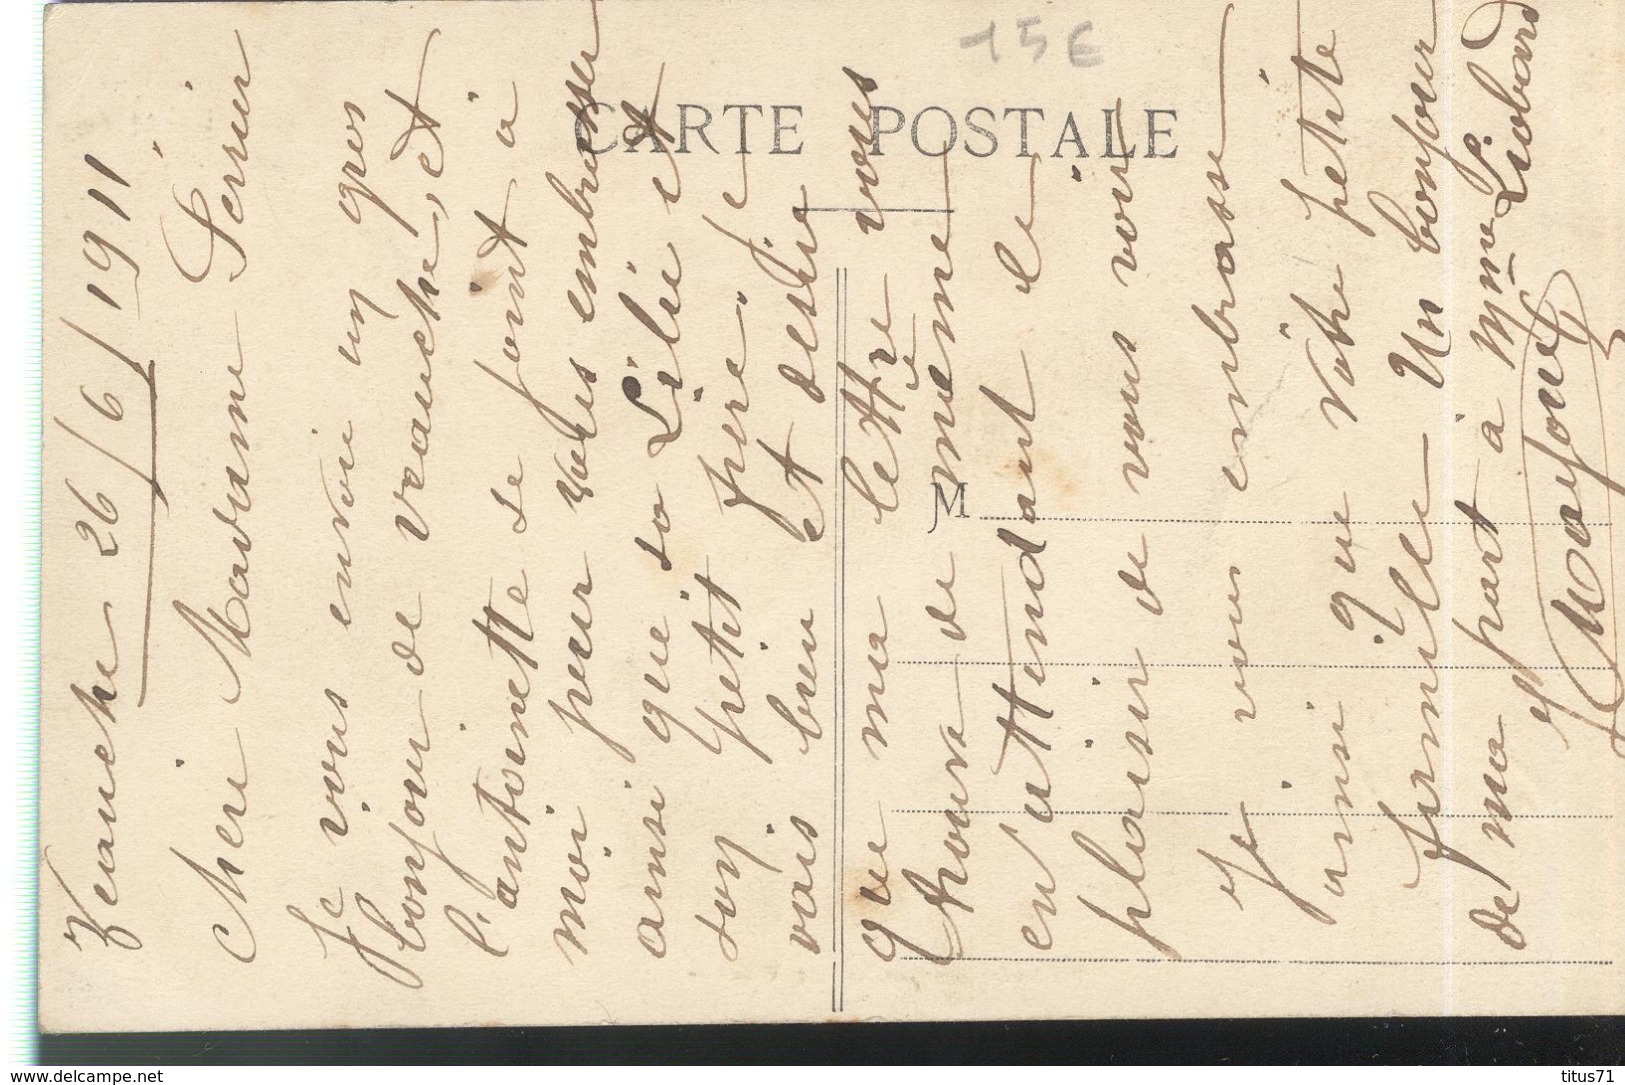 15€
CARTE POSTALE
M
Veauche 26/6/1911
Chère Madame Perrier
Je vous envoie un gros
bonjour de Veauche, et
l'antoinette se joint à
moi pour vous embrasser
ainsi que sa Lilie et
son petit père. Je
vais bien et desire
que ma lettre vous
trouve de meme
en attendant le
plaisir de vous voir
Je vous embrasse
ainsi que votre petite
famille Un bonjour
de ma part à Mme Liobard
www.delcampe.net
titus71